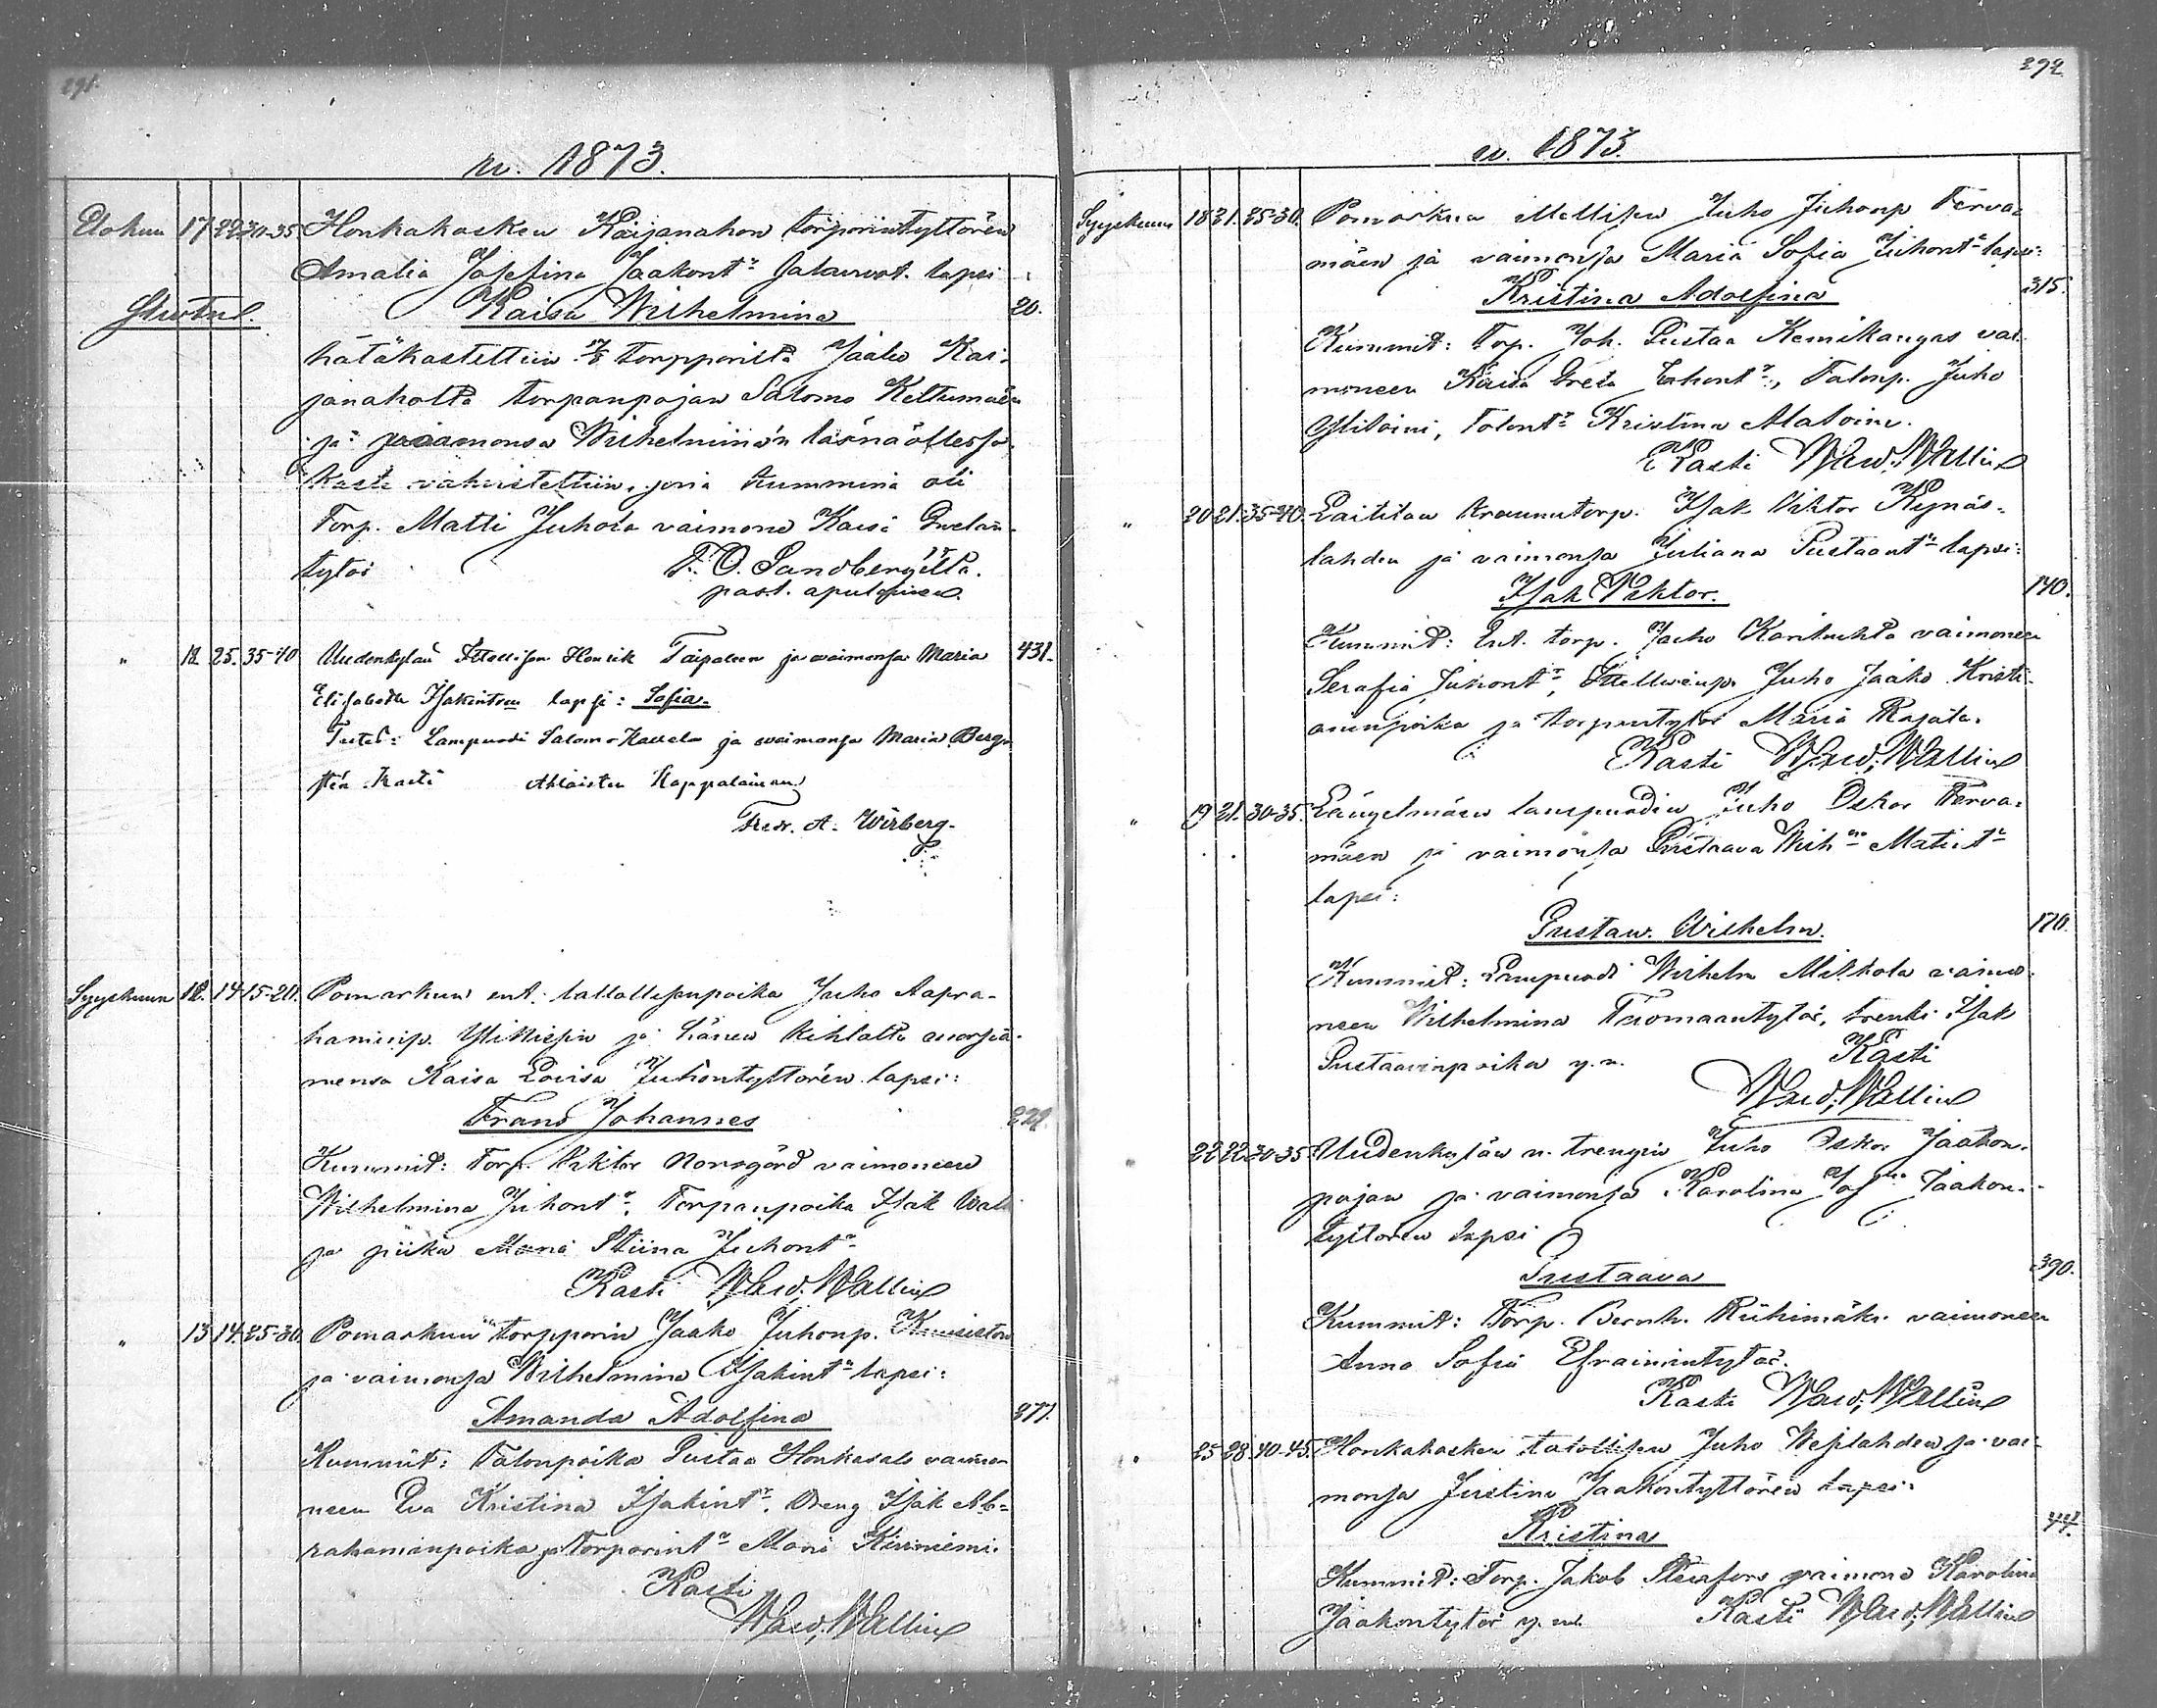 291.
w. 1873.
Elokuu 17 22 30-35 Honkakosken Kaijanahon torporintyttären
Amalia Josefina Jaakont:n lapsi
Kaisa Wilhelmina 20.
hätäkastettiin 17/8 torpparilta Jaako Kai-
janaholta torpanpojan Salomo Keltumäen
ja vaimonsa Wilhelminan läsnäollessa.
Kaste vahvistettiin, jona kummina oli
Torp. Matti Juhola vaimons Kaisa
tytär F. O. Sandbergiltä.
past. apulainen.
" 18. 25. 35-40 Uudenkylän Itsellisen Henrik Taipaleen ja waimonsa Maria 431.
Elisabeth Isakintren lapsi: Sofia.
Test: Lampuodi Salomo ja waimonsa Maria Berg-
sten Kasti Ahlaisten Kappalainen
Fredr. A. Wirberg.
Syyskuun 12. 14 15-20. Pomarkun ent. talollisenpoika Juho Aapra-
haminp. Ylikiesin ja hänen kihlattu morsia-
mensa Kaisa Lovisa Juhontyttären lapsi:
Frans Johannes 229.
Kummit: Torp. Viktor Norrgård vaimoneen
Wilhelmina Juhont:r, Torpanpoika Isak Walli
ja piika Maria Stiina Juhont:r
Kasti Waid. Wallin
" 13 14. 25-30. Pomarkun torpparin Jaako Juhonp. Kuusiston
ja vaimonsa Wilhelmina Isakint:n lapsi:
Amanda Adolfina 277.
Kummit: Talonpoika Gustaa Honkasalo vaimo-
neen Eva Kristina Isakint:r, Dreng Isak Ab-
rahaminpoika ja Torparint:r Maria Kiviniemi.
Kasti
Waid. Wallin
292.
w. 1873.
Syyskuun 18 21. 25-30. Pomarkun Itellisen Juho Juhonp Terva-
mäen ja vaimonsa Maria Sofia Juhont:n lapsi:
Kristina Adolfina 315.
Kummit: Torp. Joh. Gustaa Kemikangas vai-
moneen Kaisa Greta Juhont:r, Talonp. Juho
Ylitoini, Talont:r Kristina Alatoini.
Kasti Waid. Wallin
" 20 21. 35-40. Laititan kraunutorp. Isak Viktor Kynäs-
lahden ja vaimonsa Juliana Gustaant:n lapsi:
Isak Viktor. 140.
Kummit: Ent. torp. Jacko Karhuhta vaimoneen
Serafia Juhont:r, Itellisenp. Juho Jaako Kristi-
aninpoika ja torpantytär Maria Rajala.
Kasti Waid. Wallin
" 19 21. 30-35. Längelmäen lampuodin Juho Oskar Terva-
mäen ja vaimonsa Gustaava Wilh:na Matint:n
lapsi:
Gustaw. Wilhelm. 170.
Kummit: Lampuodi Wilhelm Mikkola vaimo-
neen Wilhelmina Tuomaantytär, trenki Isak
Gustaavinpoika y.m. Kasti
Waid. Wallin
" 22 22 30-35 Uudenkylän n. trengin Juho Oskar Jaakon-
pojan ja vaimonsa Karolina Jos:na Jaakon-
tyttären lapsi
Gustaava 390.
Kummit: Torp. Bernh. Riihimäki vaimoneen
Anna Sofia Efraimintytär.
Kasti Waid. Wallin
" 25 28. 40-45. Honkakosken talollisen Juho Wejlahden ja vai-
monsa Justina Jaakontyttären lapsi:
Kristina 44.
Kummit: Torp. Jakob vaimons Karolina
Jaakontytär y. m. Kasti Waid. Wallin